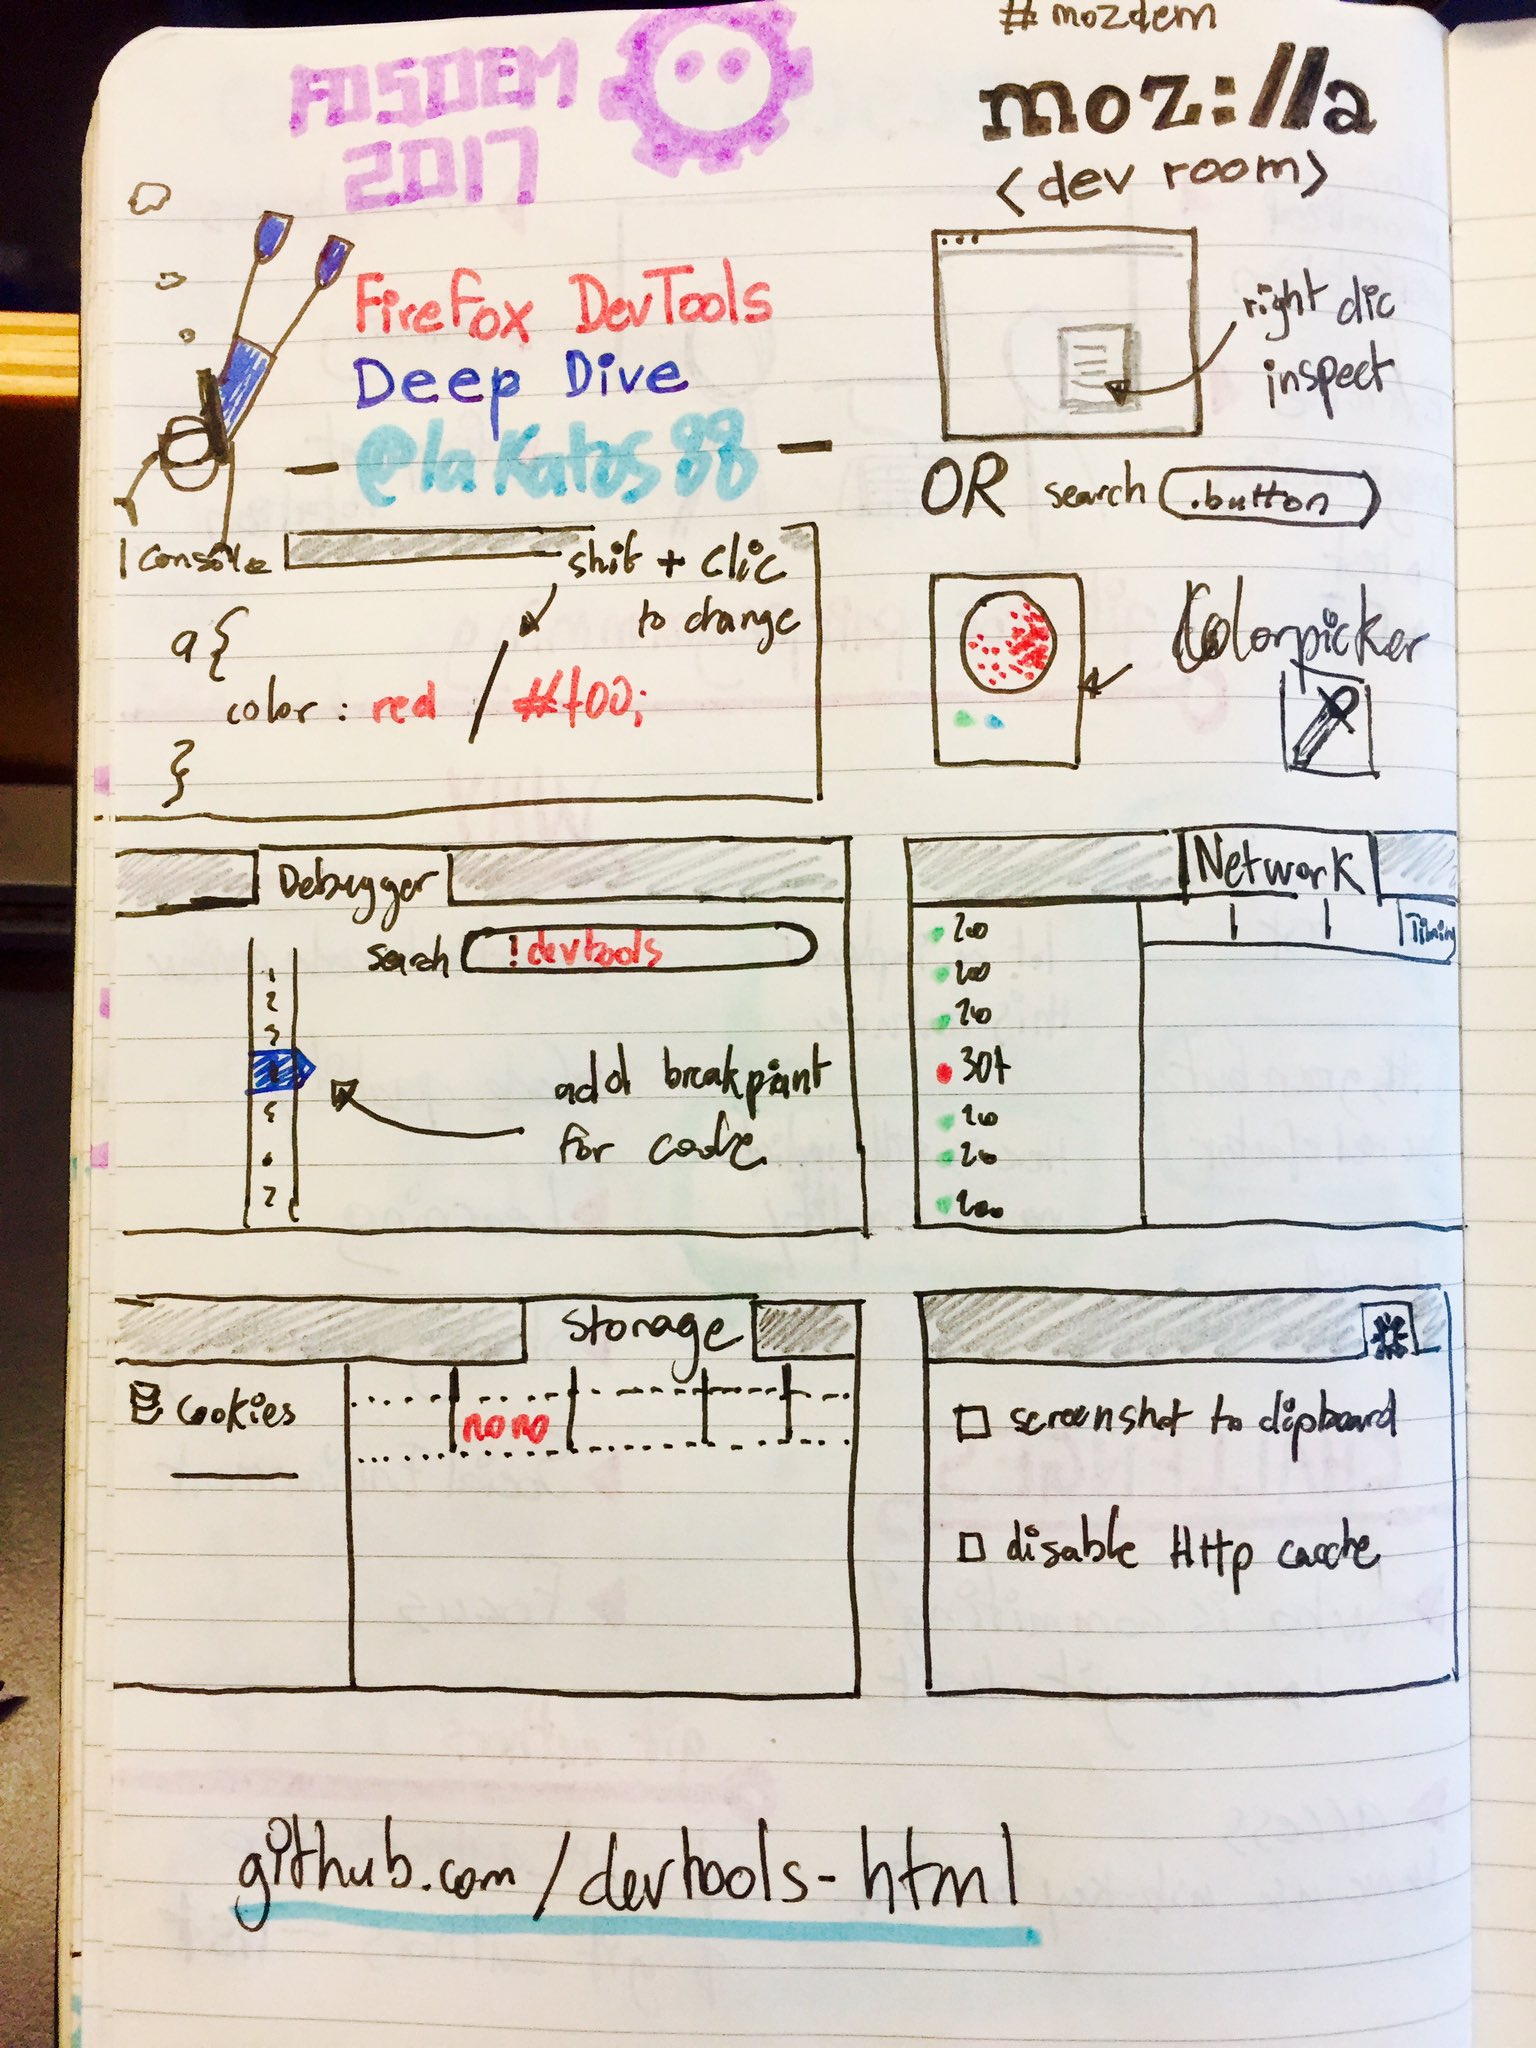 FOSDEM
2017
#mozdem
moz://a
<dev room>
Firefox DevTools
Deep Dive
- @lakatos88 -
right clic
inspect
OR search .button
console
shit + clic
to change
a{
color: red / #f00;
}
Colorpicker
Debugger
search !devtools
1
2
3
5
6
7
add breakpoint
for code
Network
Timing
200
200
200
304
200
200
200
Storage
cookies
nono
screenshot to clipboard
disable Http cache
github.com/devtools-html